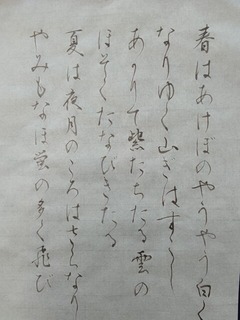 春はあけぼのやうやう白く
なりゆく山ぎはすこし
あかりて紫たちたる雲の
ほそくたなびきたる
夏は夜月のころはさらなり
やみもなほ蛍の多く飛び